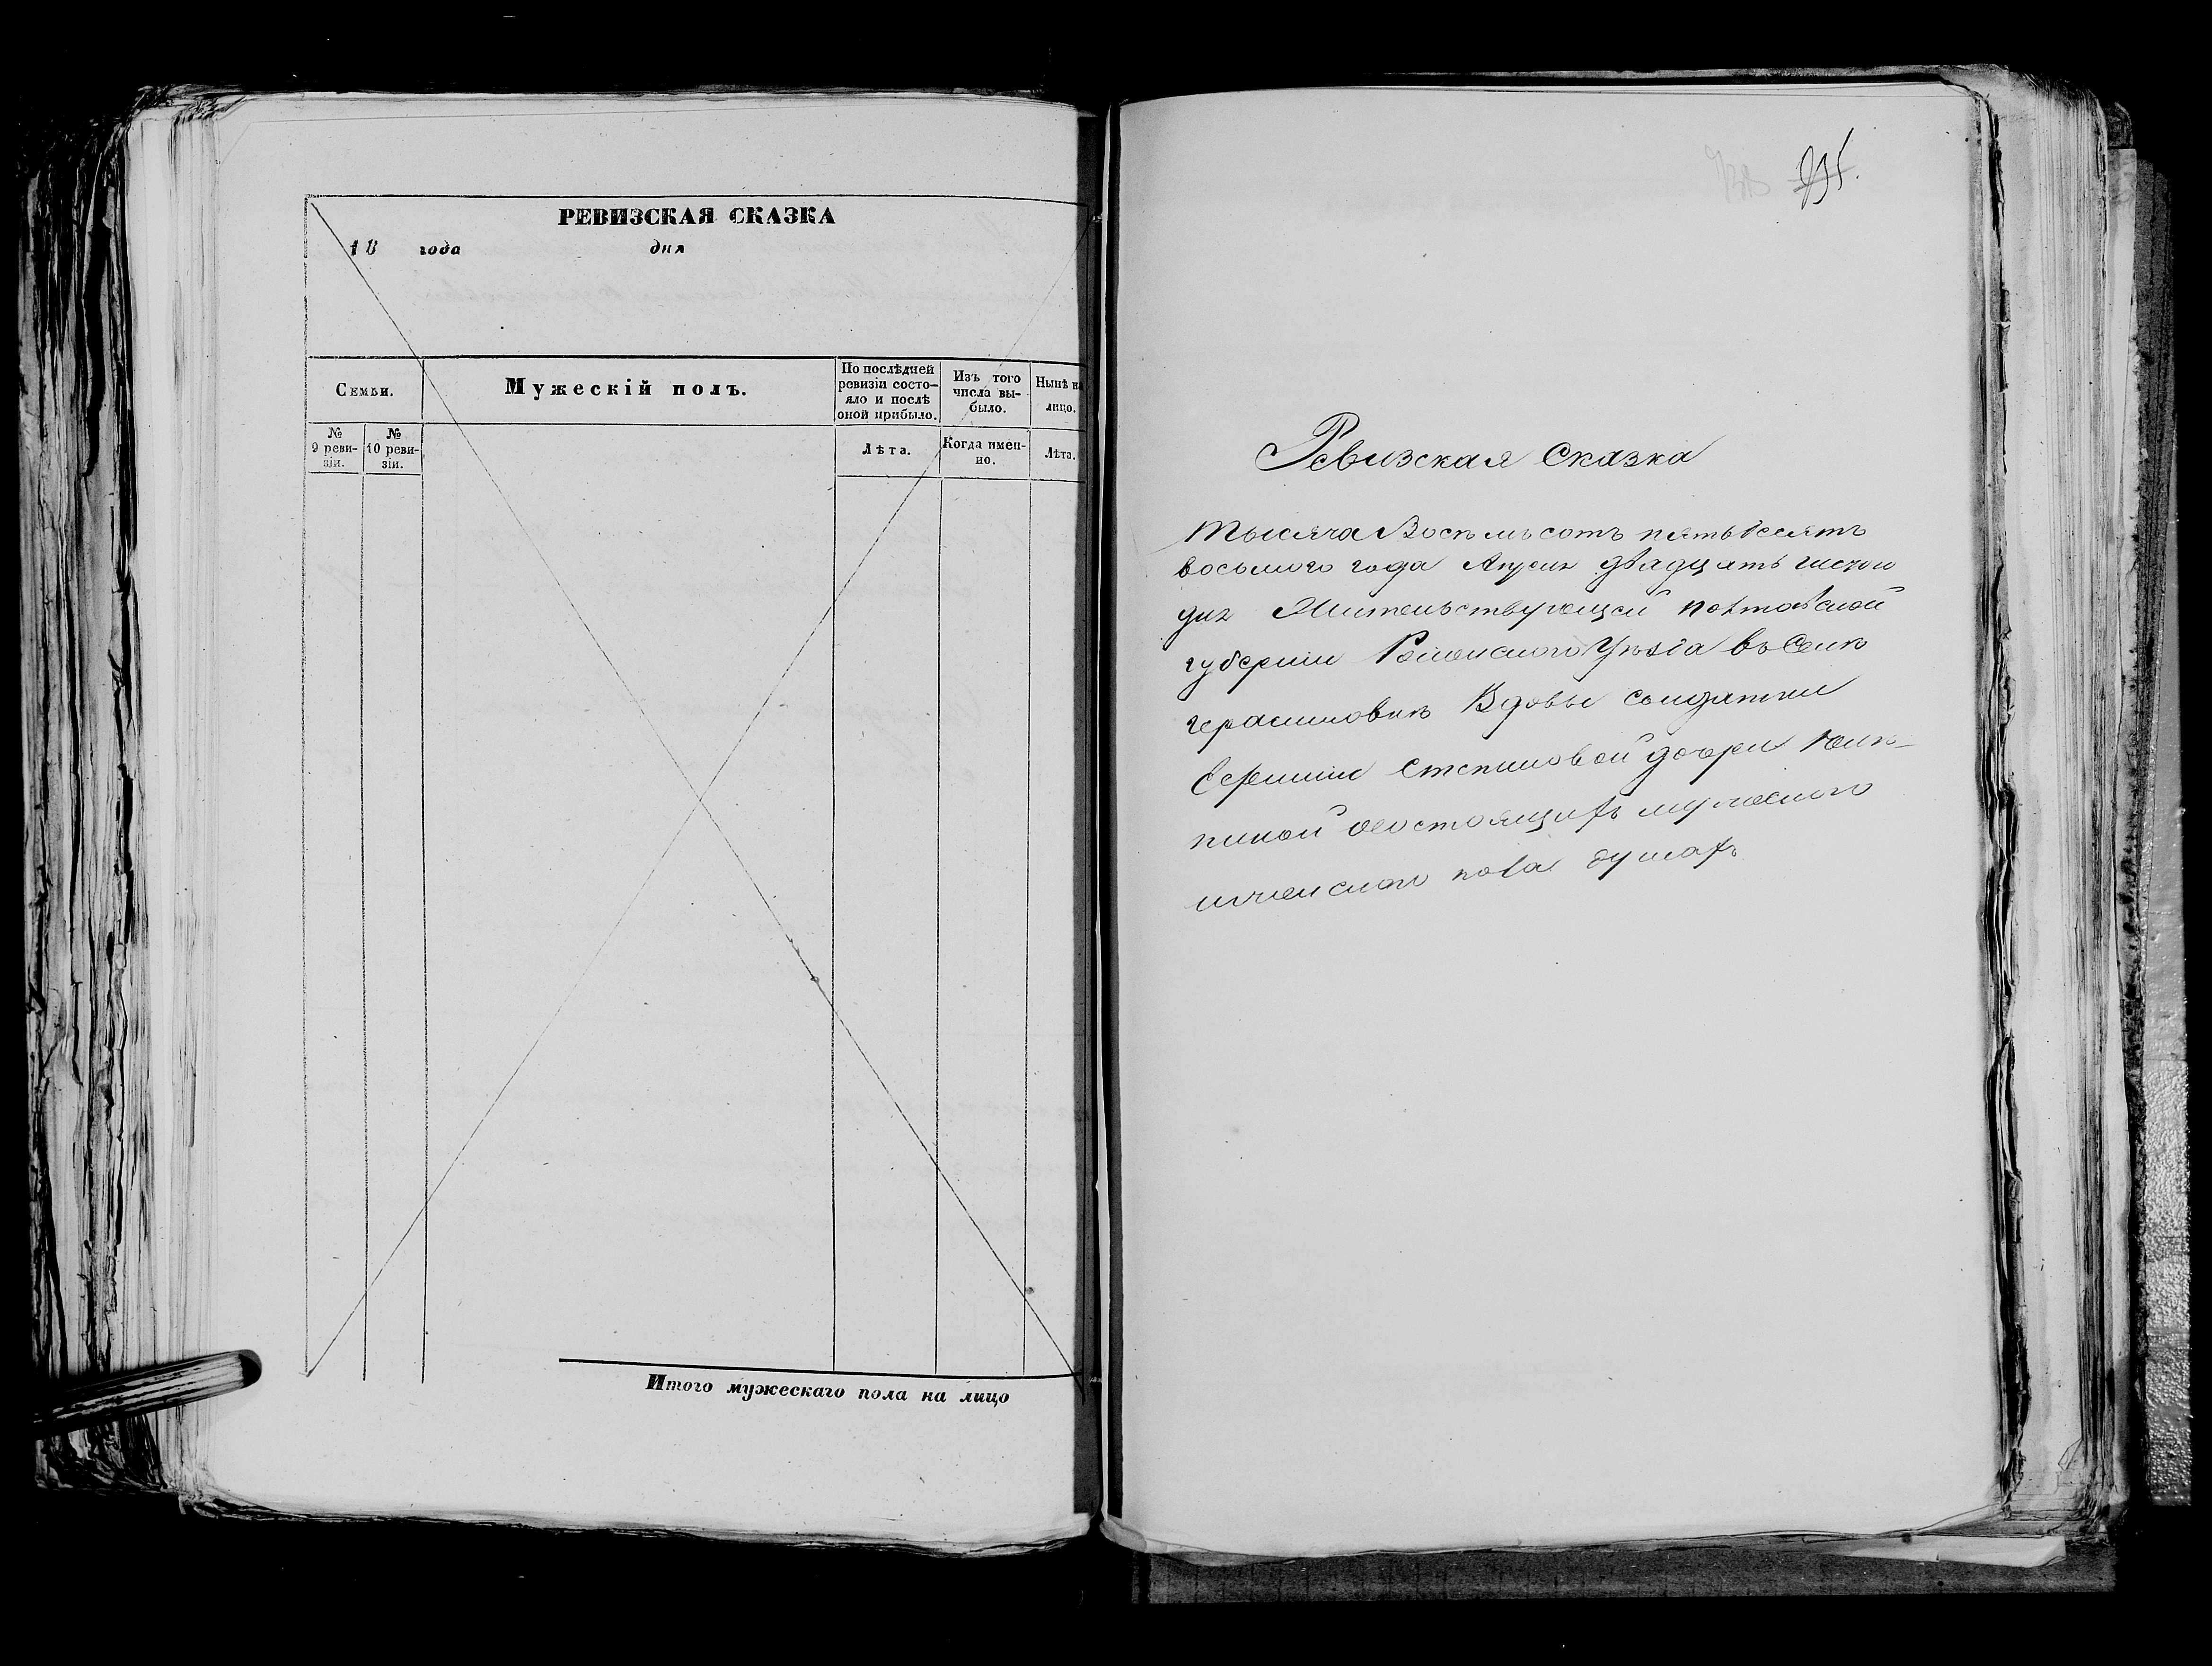 РЕВИЗСКАЯ СКАЗКА
18 года дня
Семьи.
Мужескій полъ.
По послѣдней ревизіи состо-
яло и послѣ оной прибыло.
Изъ того числа вы-
было.
Нынѣ на лицо.
№ 9 реви-
зіи.
№ 10 реви-
зіи.
Лѣта.
Когда имен-
но.
Лѣта.
Итого мужескаго пола на лицо
Ревизская Сказка
тысяча Восемьсотъ пятьдесятъ
восьмого года Апреля двадцать
дня Жительствующей полтавской
губернии Роменского Уѣзда въ Селѣ
герасимовкѣ Вдовы солдатки
Степановой дочери
пиной о состоящихъ мужеского
иженского пола душахъ